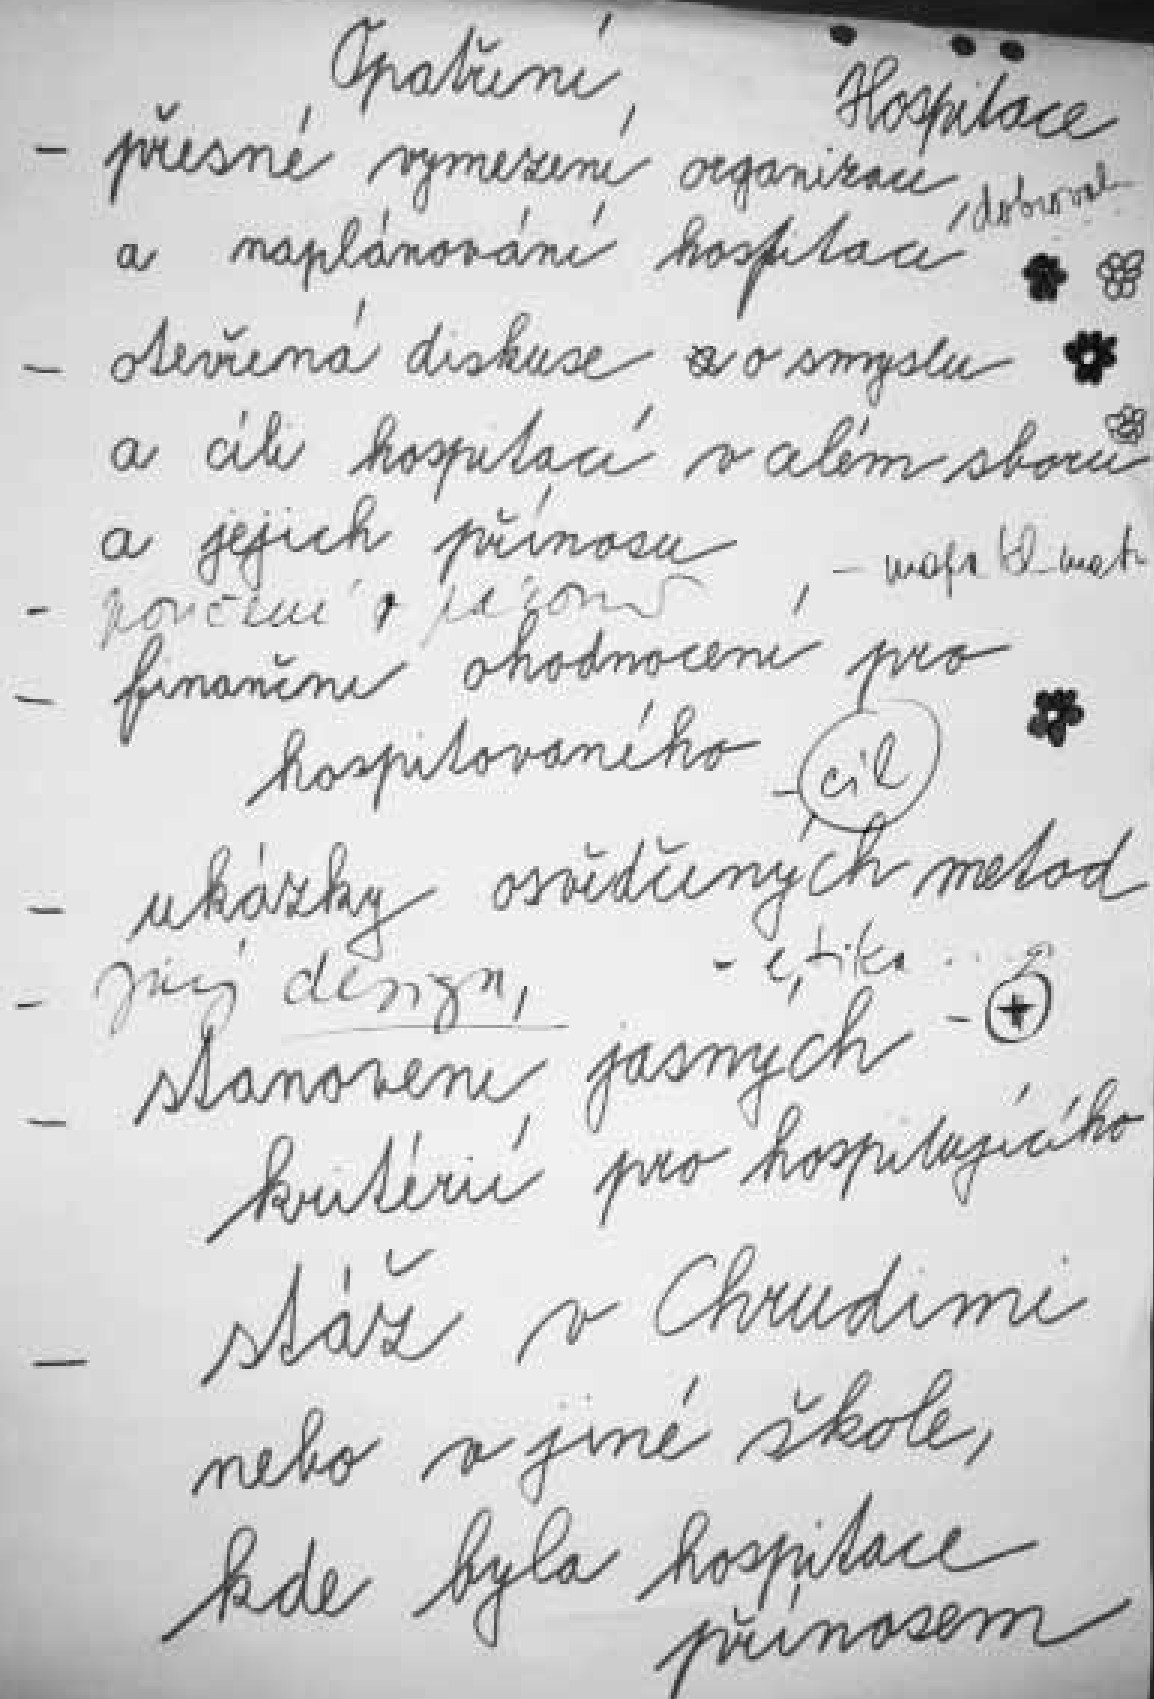 Opatření
Hospitace
- přesné vymezení organizací
, dobrovol
a naplánování hospitací
- otevřená diskuse o smyslu
a cíli hospitací v celém sboru
a jejich přínosu
-
- finanční ohodnocení pro
hospitovaného
- cíl
- ukázky osvědčených metod
- jiný design,
- etika ....
- +
- stanovení jasných
kritérií pro hospitujícího
- stáž v Chrudimi
nebo v jiné škole,
kde byla hospitace
přínosem